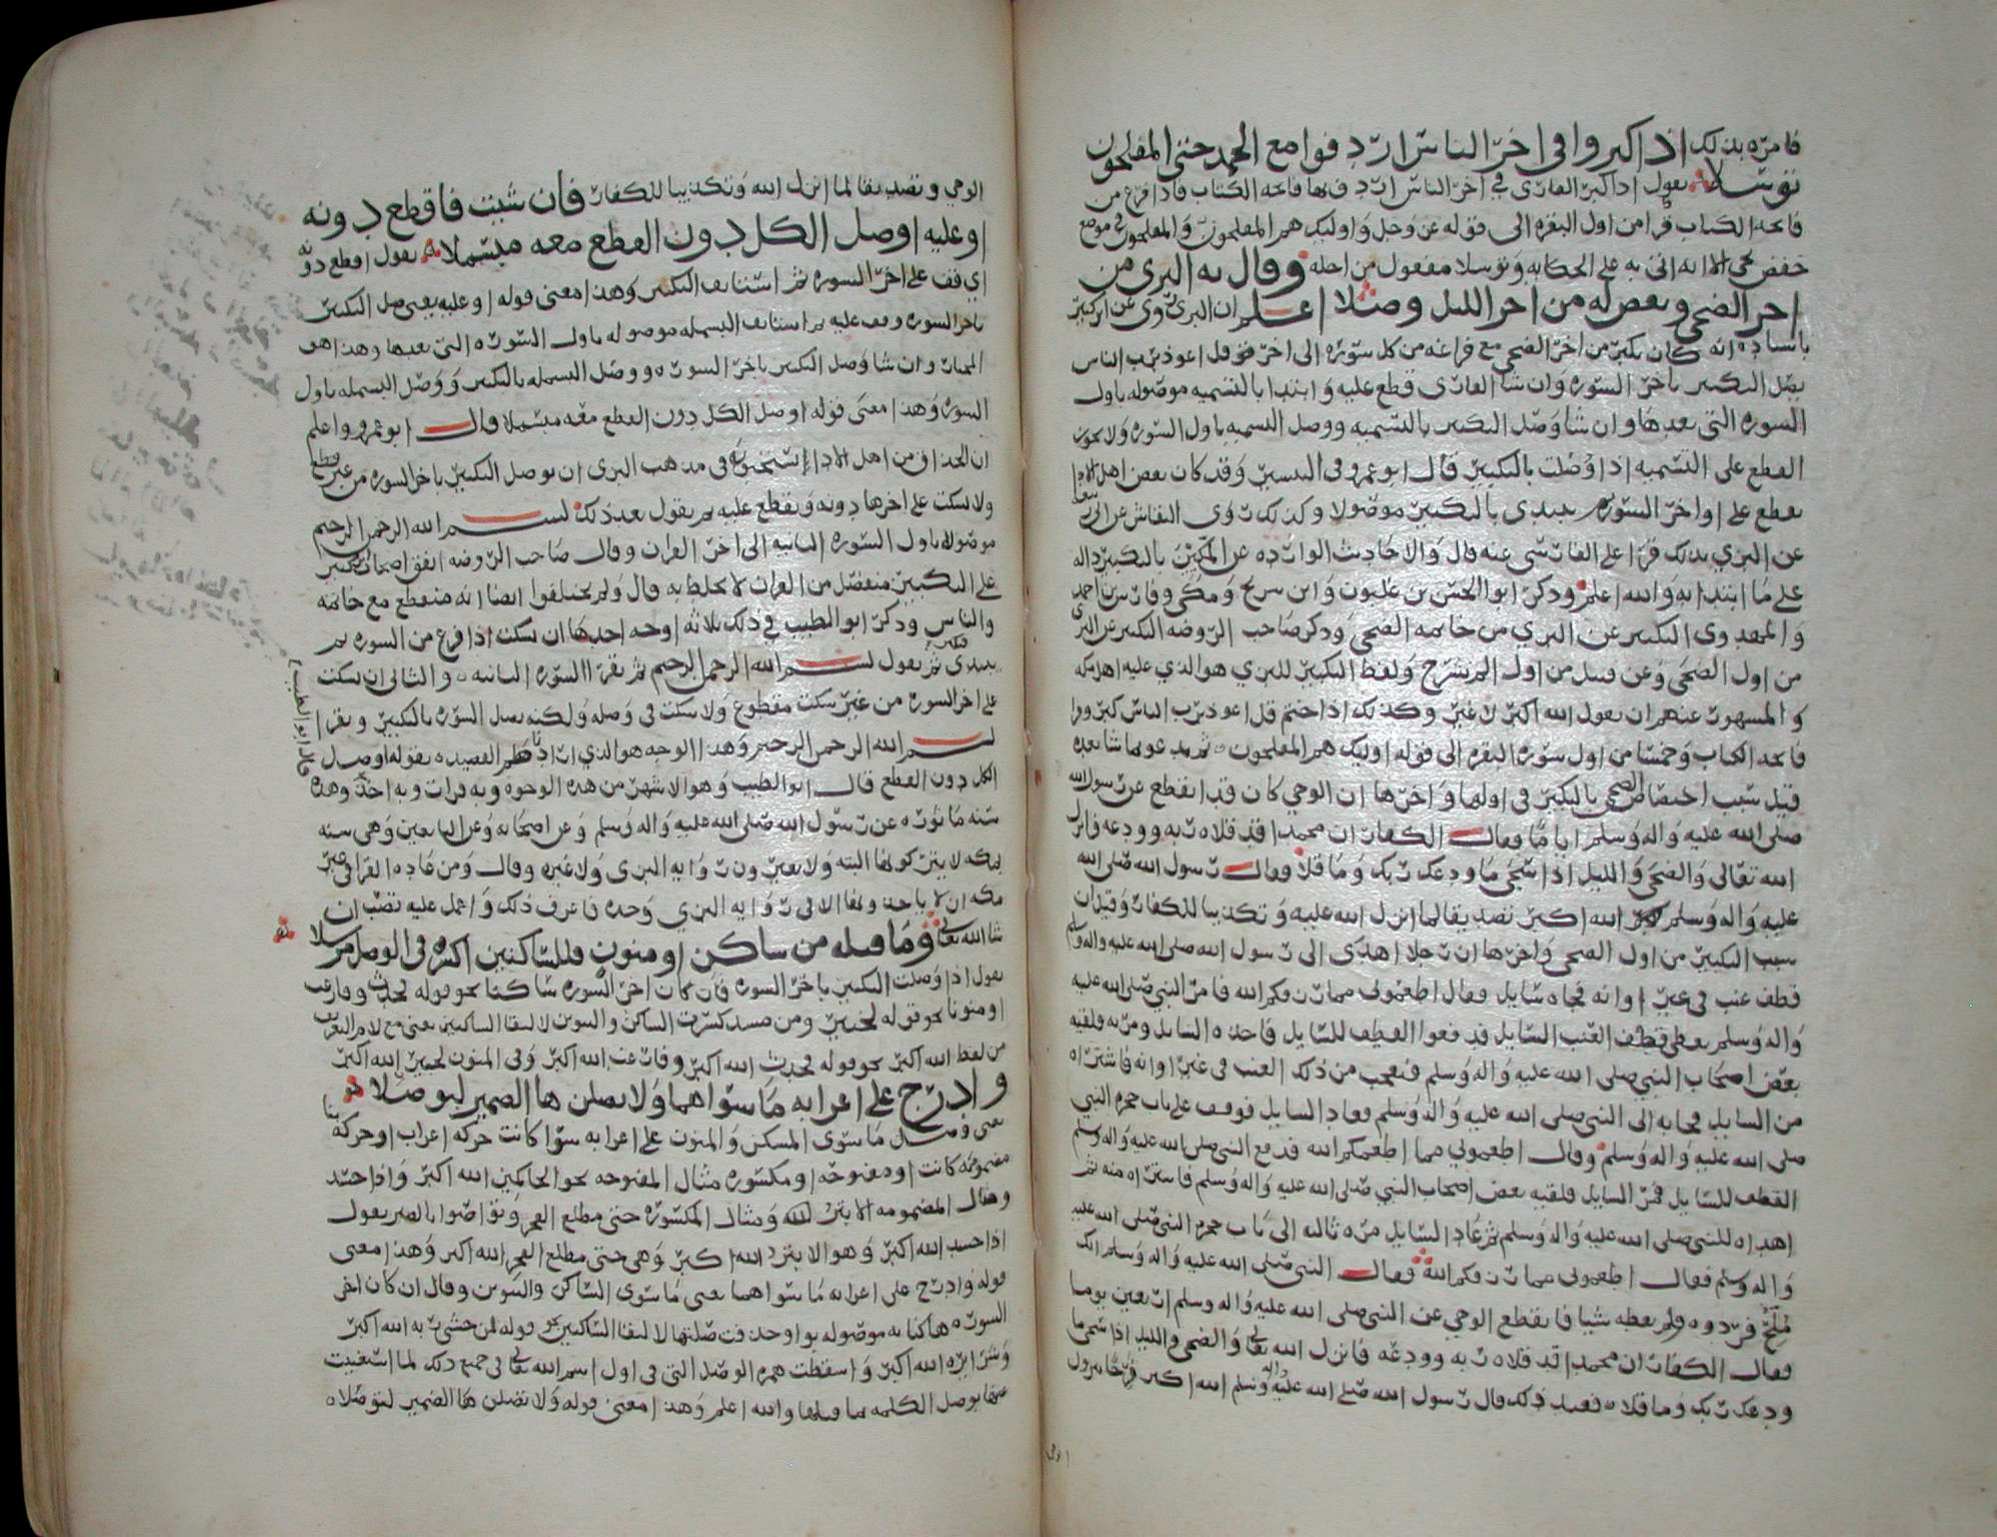 فامره بذلك اذا كبروا في اخر الناس اردفوا مع الحمد حتى المفلحون
توسلا يقول اذا كبر القارى في اخر الناس اردف بها فاتحه الكتاب فاذا فرغ من
فاتحه الكتاب قرا من اول البقره الى قوله عز وجل واوليك هم المفلحون والمفلحون في موضع
خفض الا انه اتى به على الحكايه وتوسلا مفعول من اجله وقال به البزي من
اخر الضحى وبعض له من اخر الليل وصلا اعلم ان البزي روى عن ابن كثير
باسناده انه كان يكبر من اخر الضحى مع فراغه من كل سوره الى اخر قل اعوذ برب الناس
يصل التكبير باخر السوره وان شا القارى قطع عليه وابتدا بالتسميه موصوله باول
السوره التي بعدها وان شا وصل التكبير بالتسميه ووصل التسميه باول السوره ولا يجوز
القطع على التسميه اذا وصلت بالتكبير قال ابو عمرو في التيسير وقد كان بعض اهل الادا
يقطع على اواخر السوره ويبتدي بالتكبير موصولا وكذلك روى النقاش عن ابي ربيعه
عن البزي بذلك قرا على الفارسي عنه قال والاحاديث الوارده عن المكيين بالتكبير داله
على ما ابتدا به والله اعلم وذكر ابو الحسن بن غلبون وابن شريح ومكي وفارس بن احمد
والمهدوى التكبير عن البزي من خاتمه الضحى وذكر صاحب الروضه التكبير عن البزي
من اول الضحى وعن قنبل من اول الم نشرح ولفظ التكبير للبزي هو الذي عليه اهل مكه
والمشهور عنهم ان يقول الله اكبر لا غير وكذلك اذا ختم قل اعوذ برب الناس كبر وقرا
فاتحه الكتاب وخمسا من اول سوره البقره الى قوله اوليك هم المفلحون ثم يدعو بما شا بعده
قيل سبب اختصاص الضحى بالتكبير في اولها واخرها ان الوحي كان قد انقطع عن رسول الله
صلى الله عليه واله وسلم اياما فقال الكفار ان محمدا قد قلاه ربه وودعه فانزل
الله تعالى والضحى والليل اذا سجى ما ودعك ربك وما قلا فقال رسول الله صلى الله
عليه واله وسلم الله اكبر تصديقا لما انزل الله عليه وتكذيبا للكفار وقيل ان
سبب التكبير من اول الضحى واخرها ان رجلا اهدى الى رسول الله صلى الله عليه واله وسلم
قطف عنب في غير اوانه فجاه سايل فقال اطعموني مما رزقكم الله فامر النبي صلى الله عليه
واله وسلم يعطي قطف العنب السايل فدفعوا القطف للسايل فاخذه السايل ومر به فلقيه
بعض اصحاب النبي صلى الله عليه واله وسلم فتعجب من ذلك العنب في غير اوانه فاشتراه
من السايل فجا به الى النبي صلى الله عليه واله وسلم فعاد السايل فوقف على باب حجره النبي
صلى الله عليه واله وسلم وقال اطعموني مما اطعمكم الله فدفع النبي صلى الله عليه واله وسلم
القطف للسايل فمر السايل فلقيه بعض اصحاب النبي صلى الله عليه واله وسلم فاشتراه منه ثم
اهداه للنبي صلى الله عليه واله وسلم ثم عاد السايل مره ثالثه الى باب حجره النبي صلى الله عليه
واله وسلم فقال اطعموني مما رزقكم الله فقال النبي صلى الله عليه واله وسلم انك
ملح فردوه ولم يعطه شيا فانقطع الوحي عن النبي صلى الله عليه واله وسلم اربعين يوما
فقال الكفار ان محمدا قد قلاه ربه وودعه فانزل الله تعالى والضحى والليل اذا سجى ما
ودعك ربك وما قلاه فعند ذلك قال رسول الله صلى الله عليه واله وسلم الله اكبر فرحا بنزول
الوحي
الوحي وتصديقا لما انزل الله وتكذيبا للكفار فان شيت فاقطع دونه
او عليه او صل الكل دون القطع معه مبسملا يقول اقطع دونه
اي قف على اخر السوره ثم استانف التكبير وهذا معنى قوله او عليه يعني صل التكبير
باخر السوره وقف عليه ثم استانف البسمله موصوله باول السوره التي بعدها وهذا هو
المختار وان شا وصل التكبير باخر السوره ووصل البسمله بالتكبير ووصل البسمله باول
السوره وهذا معنى قوله او صل الكل دون القطع معه مبسملا قال ابو عمرو واعلم
ان الحذاق من اهل الادا يستحبون في مذهب البزي ان يوصل التكبير باخر السوره من غير قطع
ولا سكت على اخرها دونه ويقطع عليه ثم يقول بعد ذلك بسم الله الرحمن الرحيم
موصولا باول السوره الثانيه الى اخر القران وقال صاحب الروضه اتفق اصحاب التكبير
على التكبير منفصل من القران لا يخلط به قال ولم يختلفوا ايضا انه منقطع مع خاتمه
والناس وذكر ابو الطيب في ذلك ثلاثه اوجه احدها ان سكت اذا فرغ من السوره ثم
يبتدى فيكبر ثم يقول بسم الله الرحمن الرحيم ثم يقرا السوره الثانيه والثاني ان سكت
على اخر السوره من غير سكت مقطوع ولا سكت في وصله ولكنه يصل السوره بالتكبير ويقرا
بسم الله الرحمن الرحيم وهذا الوجه هو الذي اراد ناظم القصيده بقوله او صل
الكل دون القطع قال ابو الطيب وهو الاشهر من هذه الوجوه وبه قرات وبه اخذ وهذه
سنه ماثوره عن رسول الله صلى الله عليه واله وسلم وعن اصحابه وعن التابعين وهي سنه
بمكه لا يتركونها البته ولا يعتبرون روايه البزي ولا غيره وقال ومن عاده القرا في غير
مكه ان لا ياخذوا بها الا في روايه البزي وحده فاعرف ذلك واعمل عليه تصب ان
شا الله تعالى وما قبله من ساكن او منون فللساكنين اكسره في الوصل مرسلا
يقول اذا وصلت التكبير باخر السوره فان كان اخر السوره ساكنا نحو قوله فحدث وفارغب
او منونا نحو قوله لخبير ومن مسد كسرت الساكن والتنوين لالتقا الساكنين يعني مع لام التعريف
من لفظ الله اكبر نحو قوله فحدث الله اكبر وفارغب الله اكبر وفي المنون لخبير الله اكبر
وادرج على اعرابه ما سواهما ولا تصلن ها الضمير لتوصلا
يعني وصل ما سوى المسكن والمنون على اعرابه سوا كانت حركه اعراب او حركه بنا
مضمومه كانت او مفتوحه او مكسوره مثال المفتوحه نحو الحاكمين الله اكبر واذا حسد
ومثال المضمومه الابتر الله ومثال المكسوره حتى مطلع الفجر وتواصوا بالصبر يقول
اذا حسد الله اكبر وهو الابتر الله اكبر وهي حتى مطلع الفجر الله اكبر وهذا معنى
قوله وادرج على اعرابه ما سواهما يعني ما سوى الساكن والتنوين وقال ان كان اخر
السوره ها كنايه موصوله بواو حذفت صلتها لالتقا الساكنين نحو قوله لمن خشي ربه الله اكبر
وشرا يره الله اكبر واسقطت همزه الوصل التي في اول اسم الله تعالى في جميع ذلك لما استغنيت
عنها بوصل الكلمه بما قبلها والله اعلم وهذا معنى قوله ولا تصلن ها الضمير لتوصلاه